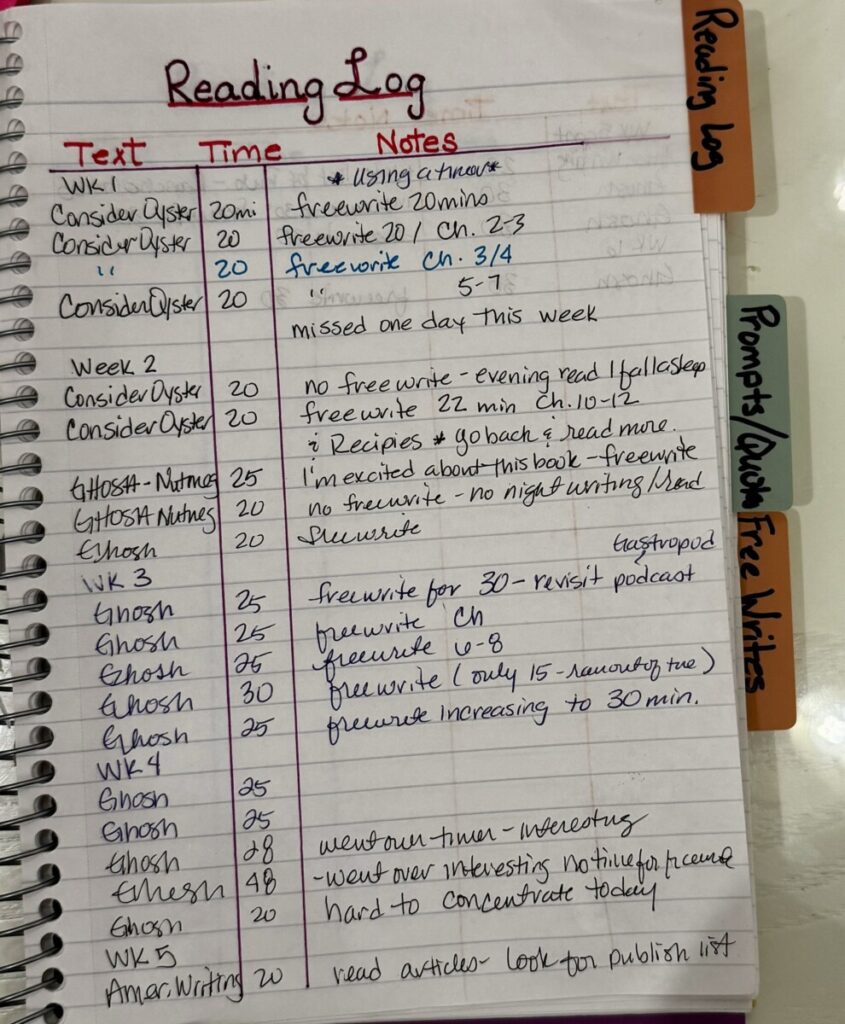 Reading Log
Text Time Notes
WK 1 * Using a timer *
Consider Oyster 20mi freewrite 20mins
Consider Oyster 20 freewrite 20 / Ch. 2-3
" 20 freewrite Ch. 3/4
Consider Oyster 20 " 5-7
missed one day this week
Week 2
Consider Oyster 20 no freewrite - evening read I fall asleep
Consider Oyster 20 freewrite 22 min Ch. 10-12
& Recipies * go back & read more.
GHOSH - Nutmeg 25 I'm excited about this book - freewrite
GHOSH Nutmeg 20 no freewrite - no night writing/read
Ghosh 20 freewrite
Gastropod
WK 3
Ghosh 25 freewrite for 30 - revisit podcast
Ghosh 25 freewrite Ch
Ghosh 25 freewrite 6-8
Ghosh 30 freewrite (only 15 - ran out of time)
Ghosh 25 freewrite increasing to 30 min.
WK 4
Ghosh 25
Ghosh 25
Ghosh 28 went over timer - interesting
Ghosh 48 - went over interesting no time for
Ghosh 20 hard to concentrate today
WK 5
Amer. Writing 20 read articles - look for publish list
Reading Log
Prompts/Quota
Free Writes